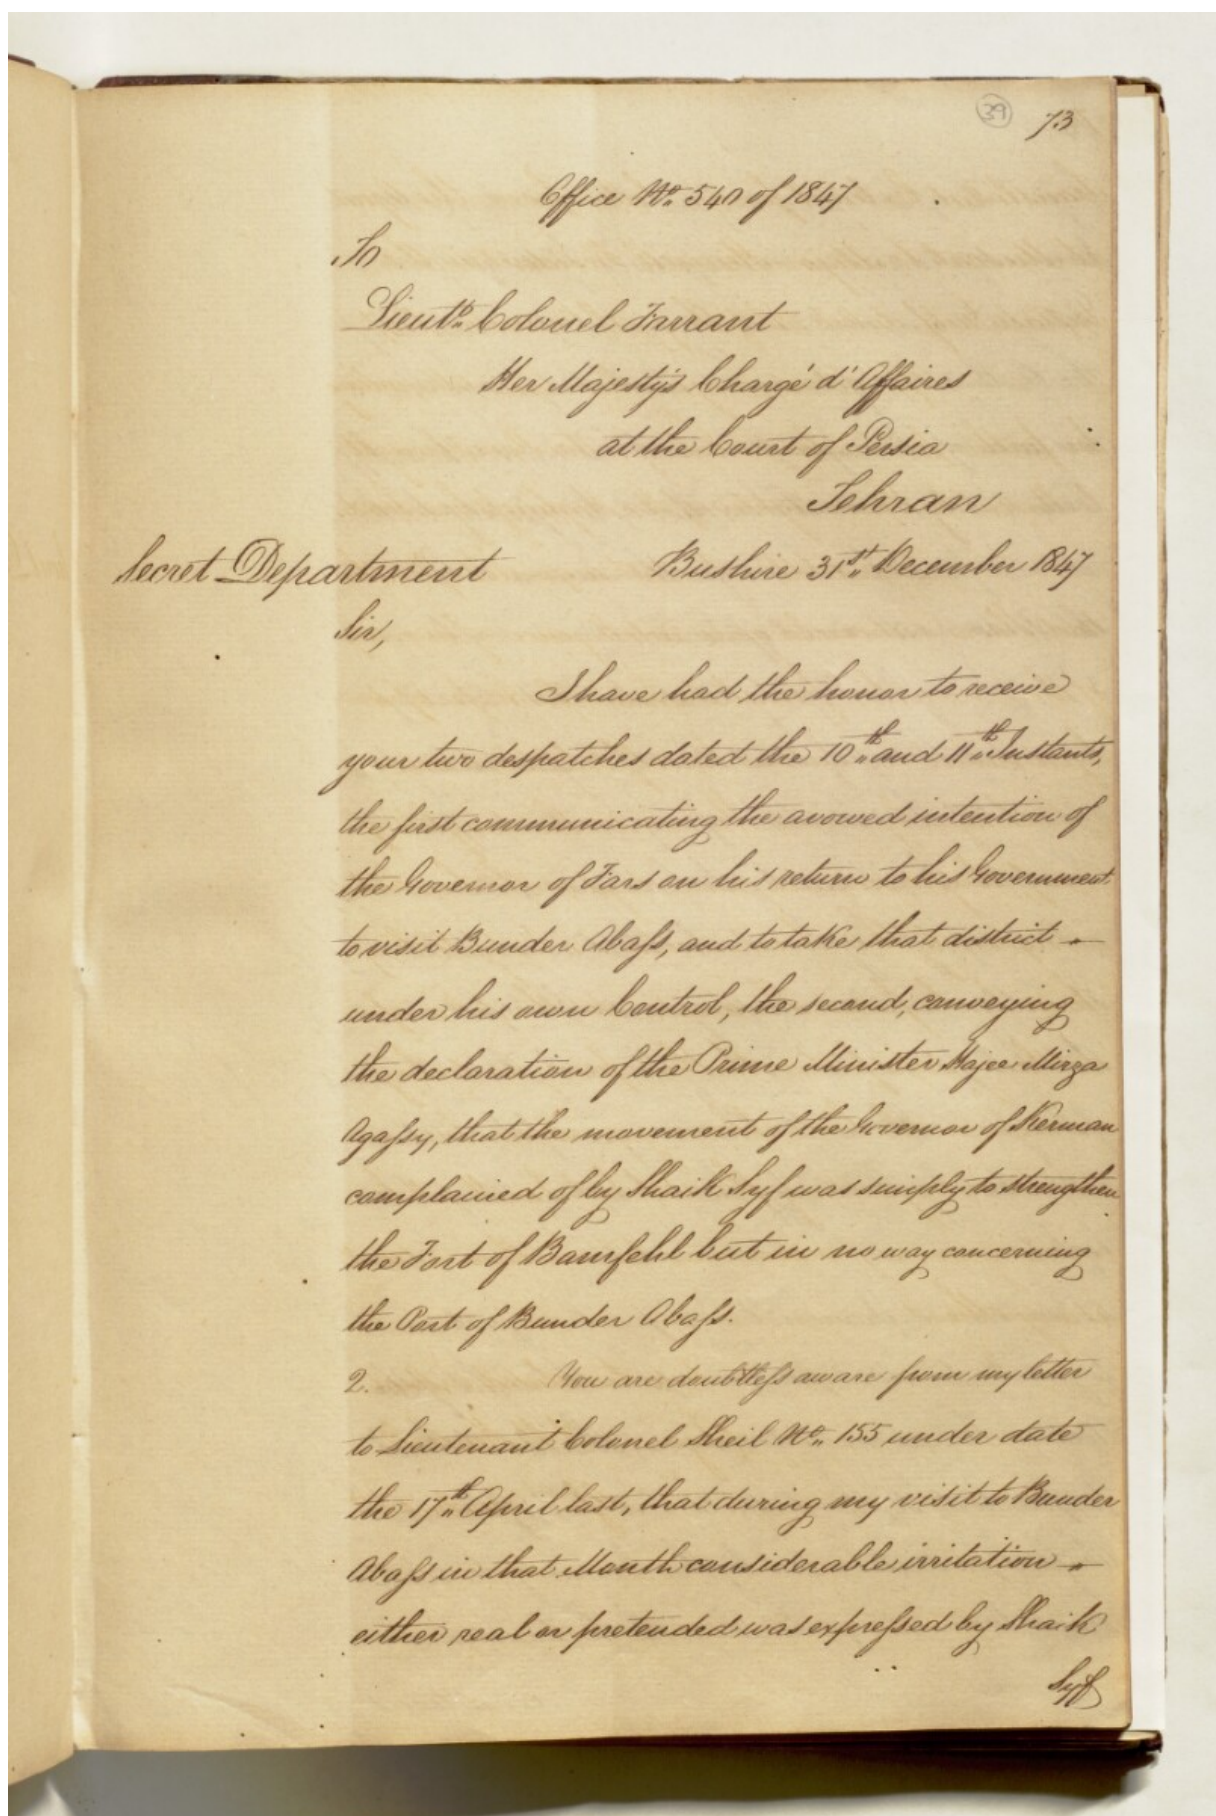 39 73
Office No. 540 of 1847
To
Lieutt. Colonel Farrant
Her Majesty's Chargé d'Affaires
at the Court of Persia
Tehran
Secret Department Bushire 31st. December 1847
Sir,
I have had the honor to receive
your two despatches dated the 10th. and 11th. Instants,
the first communicating the avowed intention of
the Governor of Fars on his return to his Government
to visit Bunder Abaſs, and to take that district
under his own Control, the second, conveying
the declaration of the Prime Minister Hajee Mirza
Agaſsy, that the movement of the Governor of Kerman
complained of by Shaik Syf was simply to strengthen
the Fort of Bamfehl but in no way concerning
the Port of Bunder Abaſs.
2. You are doubtleſs aware from my letter
to Lieutenant Colonel Sheil No. 155 under date
the 17th. April last, that during my visit to Bunder
Abaſs in that Month considerable irritation
either real or pretended was expreſsed by Shaik
Syf